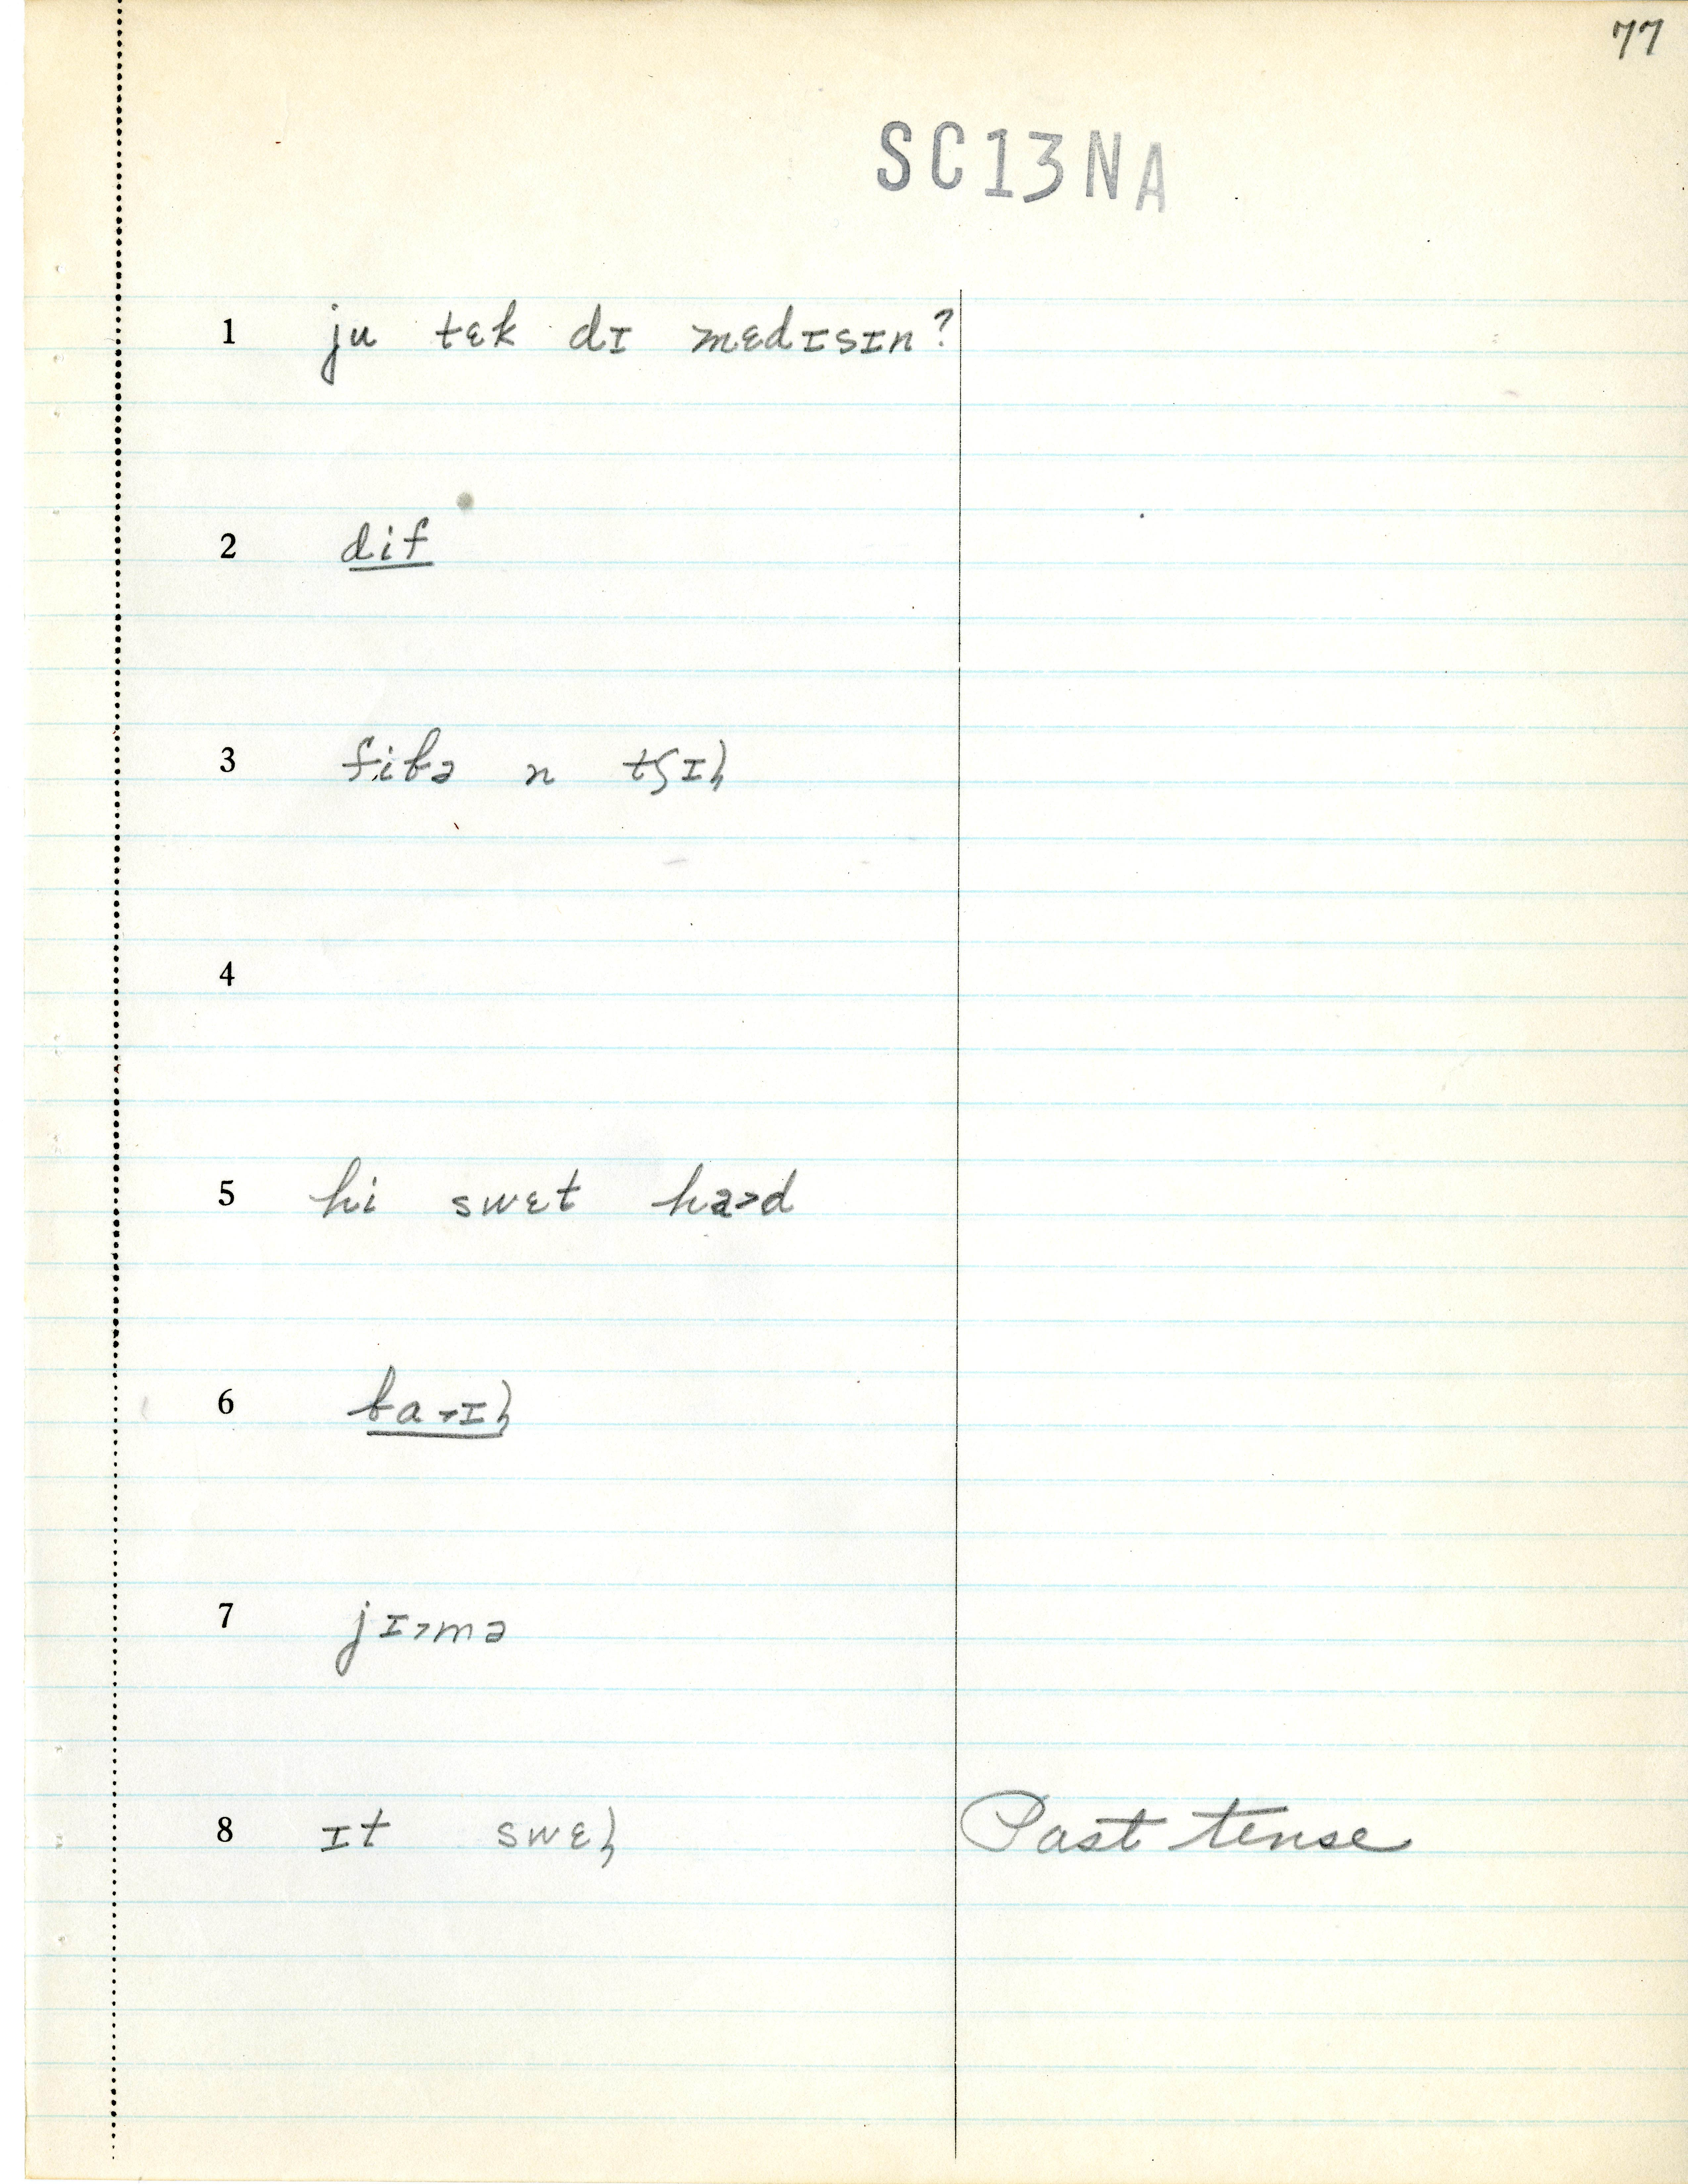 77
SC13NA
1 ju tɛk dɪ mɛdɪsɪn?
2 dif
3 fibə n tʃɪl
4
5 hi swɛt ha>d
6 ba>ɪl
7 jɪ>mə
8 ɪt swɛl Past tense